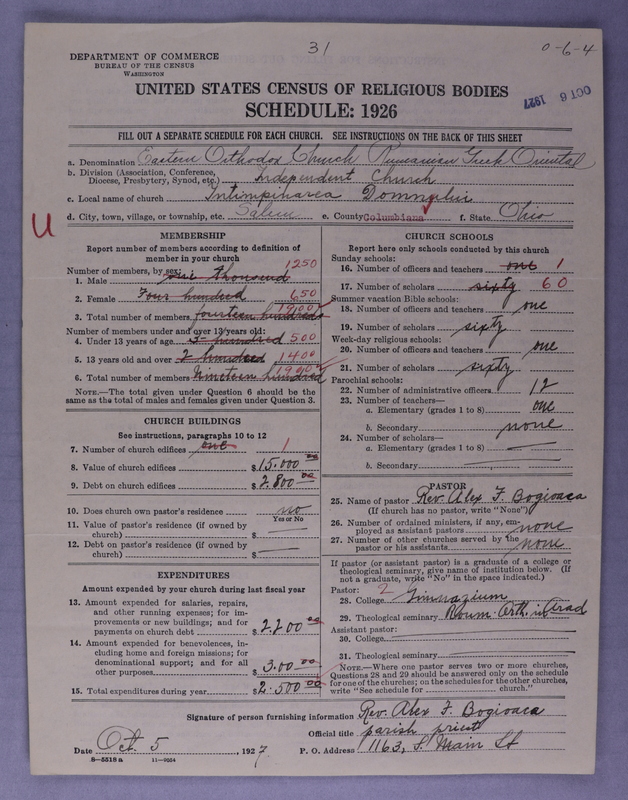 31
0-6-4
DEPARTMENT OF COMMERCE
BUREAU OF THE CENSUS
WASHINGTON
OCT 6 1927
UNITED STATES CENSUS OF RELIGIOUS BODIES
SCHEDULE: 1926
FILL OUT A SEPARATE SCHEDULE FOR EACH CHURCH. SEE INSTRUCTIONS ON THE BACK OF THIS SHEET
a. Denomination Eastern Orthodox Church Rumanian Greek Oriental
b. Division (Association, Conference, Diocese, Presbytery, Synod, etc.) Independent Church
c. Local name of church Intimpinarea Domnului
U
d. City, town, village, or township, etc. Salem e. County Columbiana f. State Ohio
MEMBERSHIP
Report number of members according to definition of
member in your church
Number of members by sex:
1. Male one thousand 1250
2. Female Four hundred 650
3. Total number of members fourteen hundred 1900
Number of members under and over 13 years old:
4. Under 13 years of age 5 hundred 500
5. 13 years old and over 1400
6. Total number of members Nineteen hundred 1900
NOTE.—The total given under Question 6 should be the
same as the total of males and females given under Question 3.
CHURCH BUILDINGS
See instructions, paragraphs 10 to 12
7. Number of church edifices one 1
8. Value of church edifices $ 15.000 00
9. Debt on church edifices $ 2.800 00
10. Does church own pastor's residence no
Yes or No
11. Value of pastor's residence (if owned by
church) $
12. Debt on pastor's residence (if owned by
church) $
EXPENDITURES
Amount expended by your church during last fiscal year
13. Amount expended for salaries, repairs,
and other running expenses; for im-
provements or new buildings; and for
payments on church debt $ 2.200 00
14. Amount expended for benevolences, in-
cluding home and foreign missions; for
denominational support; and for all
other purposes $ 3.00 00
15. Total expenditures during year $ 2.500 00
CHURCH SCHOOLS
Report here only schools conducted by this church
Sunday schools:
16. Number of officers and teachers one 1
17. Number of scholars sixty 60
Summer vacation Bible schools:
18. Number of officers and teachers one
19. Number of scholars sixty
Week-day religious schools:
20. Number of officers and teachers one
21. Number of scholars sixty
Parochial schools:
22. Number of administrative officers 12
23. Number of teachers—
a. Elementary (grades 1 to 8) one
b. Secondary none
24. Number of scholars—
a. Elementary (grades 1 to 8)
b. Secondary
PASTOR
25. Name of pastor Rev. Alex F. Bogioaca
(If church has no pastor, write "None")
26. Number of ordained ministers, if any, em-
ployed as assistant pastors none
27. Number of other churches served by the
pastor or his assistants none
If pastor (or assistant pastor) is a graduate of a college or
theological seminary, give name of institution below. (If
not a graduate, write "No" in the space indicated.)
Pastor: 2
28. College Gimnazium
29. Theological seminary Roum. Orth. in Arad
Assistant pastor:
30. College
31. Theological seminary
NOTE.—Where one pastor serves two or more churches,
Questions 28 and 29 should be answered only on the schedule
for one of the churches; on the schedules for the other churches,
write "See schedule for church."
Signature of person furnishing information Rev. Alex F. Bogioaca
Official title parish priest
Date Oct. 5, 1927 P. O. Address 1163, S. Main St
8-5518 a 11-9664